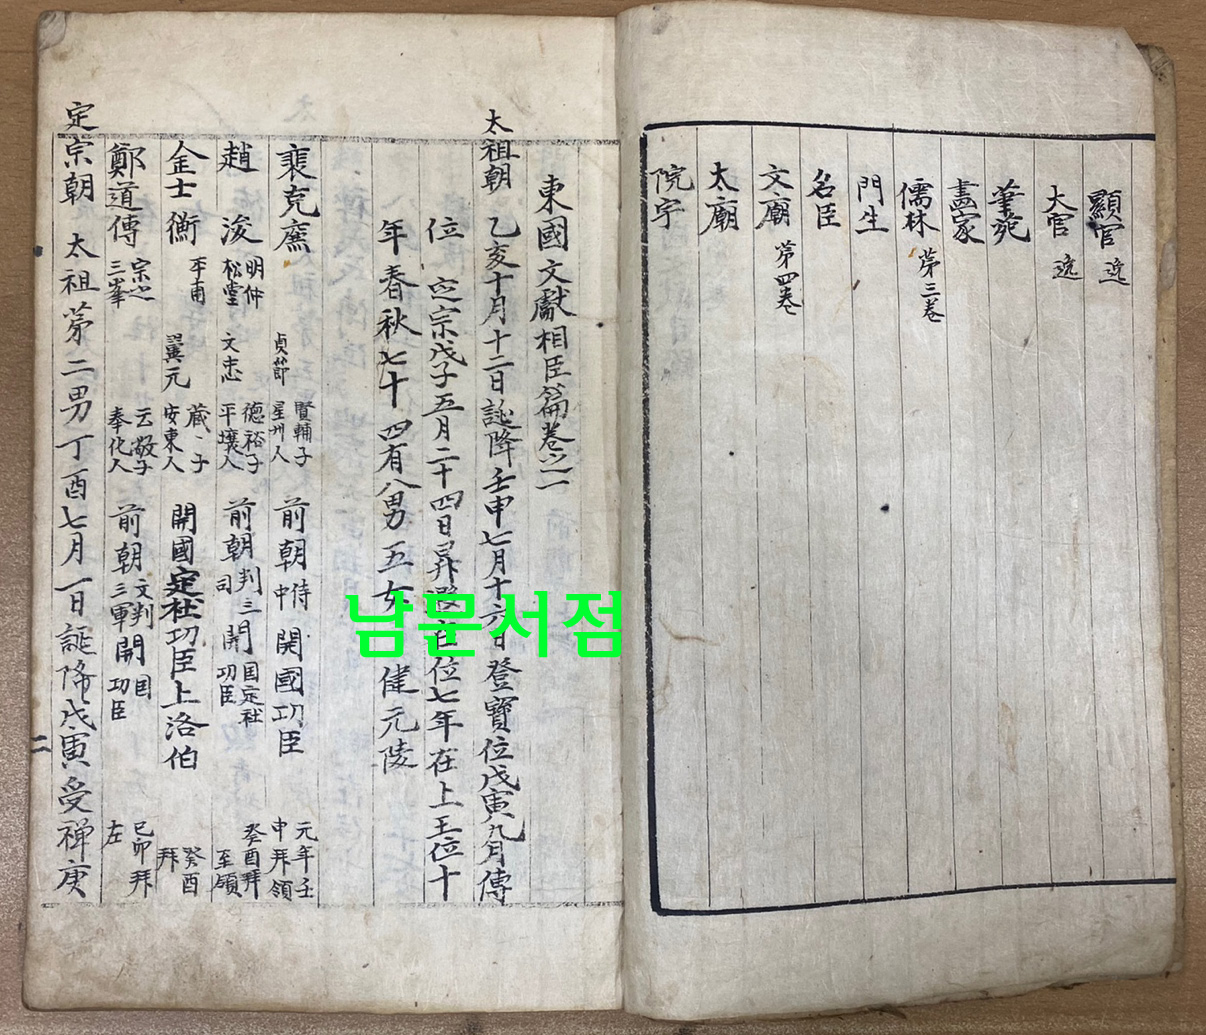 顯官 逸
大官 逸
筆苑
畫家
儒林 第三卷
門生
名臣
文廟 第四卷
太廟
院宇
東國文獻相臣篇卷之一
太祖朝 乙亥十月十二日誕降壬申七月十六日登寶位戊寅九月傳
位 定宗戊子五月二十四日昇遐在位七年在上王位十
年春秋七十四有八男五女 健元陵
裵克廉 貞節 賢輔子 星州人 前朝侍中 開國功臣 元年壬申拜領
趙浚 明仲 松堂 文忠 德裕子 平壤人 前朝判三司 開國定社功臣 癸酉拜至領
金士衡 平甫 翼元 蕆、子 安東人 開國定社功臣上洛伯 癸酉拜
鄭道傳 宗之 三峯 云敬子 奉化人 前朝文判三軍 開国功臣 己卯拜左
定宗朝 太祖第二男丁酉七月一日誕降戊寅受禅庚
二
남문서점